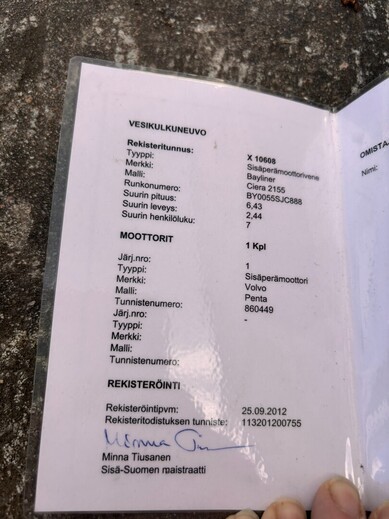 VESIKULKUNEUVO
Rekisteritunnus: X 10608
Tyyppi: Sisäperämoottorivene
Merkki: Bayliner
Malli: Ciera 2155
Runkonumero: BY0055SJC888
Suurin pituus: 6,43
Suurin leveys: 2,44
Suurin henkilöluku: 7
MOOTTORIT 1 Kpl
Järj.nro: 1
Tyyppi: Sisäperämoottori
Merkki: Volvo
Malli: Penta
Tunnistenumero: 860449
Järj.nro: -
Tyyppi:
Merkki:
Malli:
Tunnistenumero:
REKISTERÖINTI
Rekisteröintipvm: 25.09.2012
Rekisteritodistuksen tunniste: 113201200755
Minna
Minna Tiusanen
Sisä-Suomen maistraatti
OMISTAJ
Nimi: